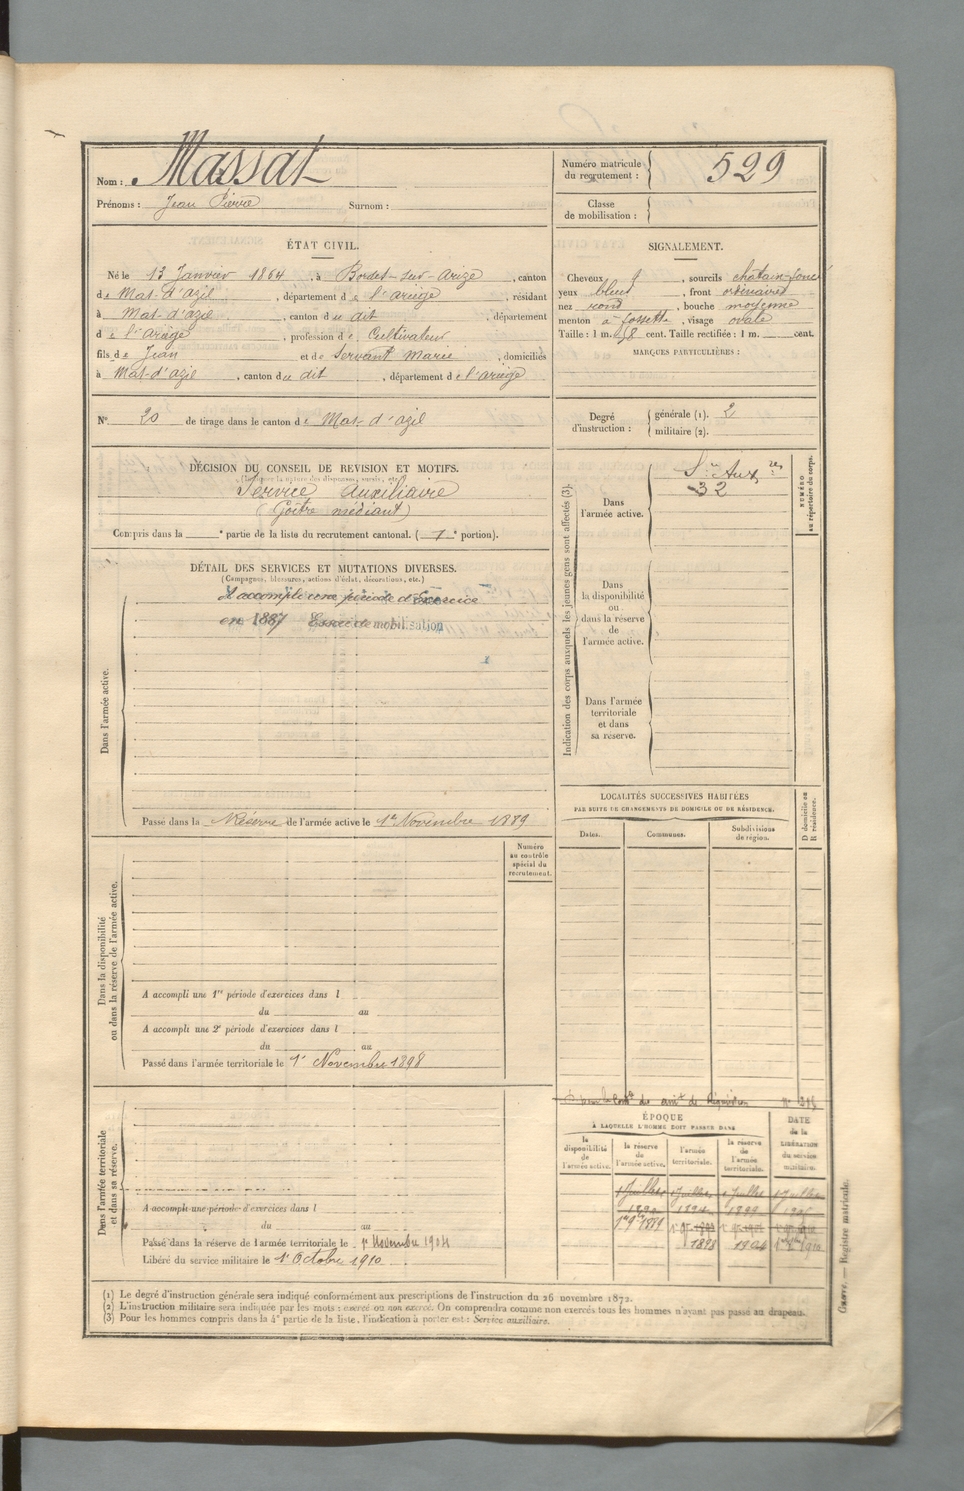 Nom : Massat
Prénoms : Jean Pierre Surnom :
Numéro matricule du recrutement : 529
Classe de mobilisation :
ÉTAT CIVIL.
Né le 13 Janvier 1864, à Bordes-sur-Arize, canton
de Mas-d'azil, département de l'ariège, résidant
à Mas-d'azil, canton du dit, département
de l'ariège, profession de Cultivateur
fils de Jean et de Servant Marie, domiciliés
à Mas-d'azil, canton du dit, département de l'ariège
SIGNALEMENT.
Cheveux, sourcils châtain-foncé
yeux bleus, front ordinaire
nez rond, bouche moyenne
menton à fossette, visage ovale
Taille : 1 m. 58 cent. Taille rectifiée : 1 m. cent.
MARQUES PARTICULIÈRES :
N° 20 de tirage dans le canton de Mas-d'azil
Degré d'instruction : générale (1). 2
militaire (2).
DÉCISION DU CONSEIL DE REVISION ET MOTIFS.
(Indiquer la nature des dispenses, sursis, etc.)
Service auxiliaire
(Goître médiant)
Compris dans la e partie de la liste du recrutement cantonal. ( e portion).
DÉTAIL DES SERVICES ET MUTATIONS DIVERSES.
(Campagnes, blessures, actions d'éclat, décorations, etc.)
Dans l'armée active.
A accompli une période d'Exercice
en 1887 Essai de mobilisation
Passé dans la Réserve de l'armée active le 1er Novembre 1889
Indication des corps auxquels les jeunes gens sont affectés (3).
Dans l'armée active.
Sce Auxres
32
NUMÉRO au répertoire du corps.
Dans la disponibilité ou dans la réserve de l'armée active.
Dans l'armée territoriale et dans sa réserve.
LOCALITÉS SUCCESSIVES HABITÉES
PAR SUITE DE CHANGEMENTS DE DOMICILE OU DE RÉSIDENCE.
Dates. Communes. Subdivisions de région.
D domicile ou R résidence.
Dans la disponibilité ou dans la réserve de l'armée active.
Numéro au contrôle spécial du recrutement.
A accompli une 1re période d'exercices dans l
du au
A accompli une 2e période d'exercices dans l
du au
Passé dans l'armée territoriale le 1er Novembre 1898
Dans l'armée territoriale et dans sa réserve.
A accompli une période d'exercices dans l
du au
Passé dans la réserve de l'armée territoriale le 1er Novembre 1904
Libéré du service militaire le 1er Octobre 1910
ÉPOQUE
À LAQUELLE L'HOMME DOIT PASSER DANS
la disponibilité de l'armée active.
la réserve de l'armée active.
l'armée territoriale.
la réserve de l'armée territoriale.
DATE de la LIBÉRATION du service militaire.
1 Juillet 1 Juillet 1 Juillet 1 Juillet
1890 1894 1899
1er 9bre 1889
1898 1904 1910
(1) Le degré d'instruction générale sera indiqué conformément aux prescriptions de l'instruction du 26 novembre 1872.
(2) L'instruction militaire sera indiquée par les mots : exercé ou non exercé. On comprendra comme non exercés tous les hommes n'ayant pas passé au drapeau.
(3) Pour les hommes compris dans la 4e partie de la liste, l'indication à porter est : Service auxiliaire.
Registre matricule.